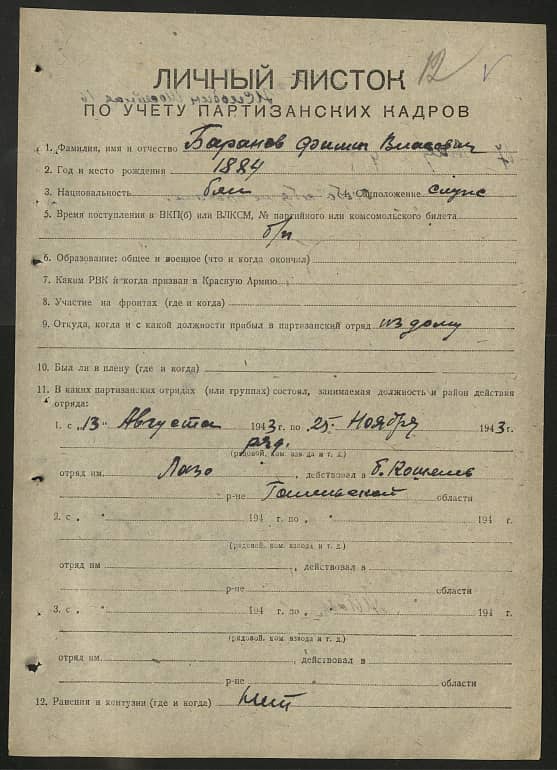 12
ЛИЧНЫЙ ЛИСТОК
ПО УЧЕТУ ПАРТИЗАНСКИХ КАДРОВ
1. Фамилия, имя и отчество Баранов Филип Власович
2. Год и место рождения 1884
3. Национальность бел 4. Соцположение служ
5. Время поступления в ВКП(б) или ВЛКСМ, № партийного или комсомольского билета
б/п
6. Образование: общее и военное (что и когда окончил)
7. Каким РВК и когда призван в Красную Армию
8. Участие на фронтах (где и когда)
9. Откуда, когда и с какой должности прибыл в партизанский отряд из дому
10. Был ли в плену (где и когда)
11. В каких партизанских отрядах (или группах) состоял, занимаемая должность и район действия
отряда:
1. с „13" Августа 1943 г. по 25 Ноября 1943 г.
ряд.
(рядовой, ком. взвода и т. д.)
отряд им. Лазо, действовал в б. Кошель
р-не Гомельской области
2. с „ 194 г. по 194 г.
(рядовой, ком. взвода и т. д.)
отряд им. , действовал в
р-не области
3. с „ 194 г. по 194 г.
(рядовой, ком. взвода и т. д.)
отряд им. , действовал в
р-не области
12. Ранения и контузии (где и когда) нет